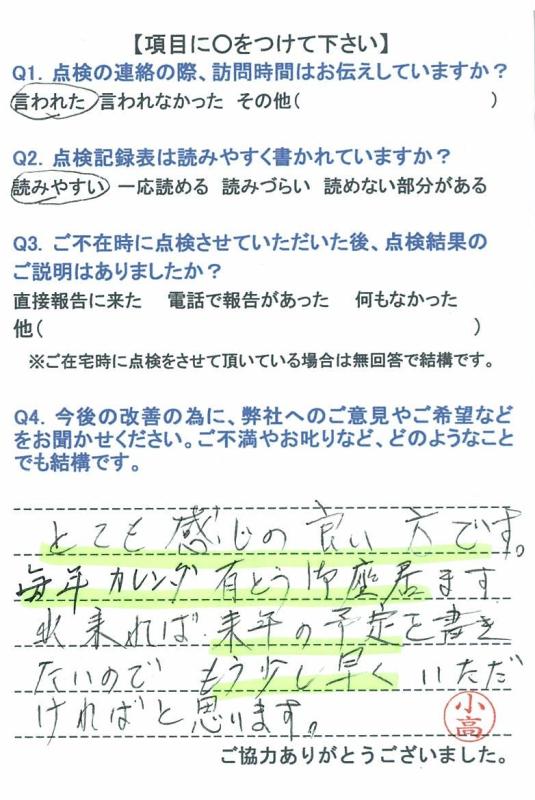 【項目に〇をつけて下さい】
Q1. 点検の連絡の際、訪問時間はお伝えしていますか？
言われた 言われなかった その他( )
Q2. 点検記録表は読みやすく書かれていますか？
読みやすい 一応読める 読みづらい 読めない部分がある
Q3. ご不在時に点検させていただいた後、点検結果の
ご説明はありましたか？
直接報告に来た 電話で報告があった 何もなかった
他( )
※ご在宅時に点検をさせて頂いている場合は無回答で結構です。
Q4. 今後の改善の為に、弊社へのご意見やご希望など
をお聞かせください。ご不満やお叱りなど、どのようなこと
でも結構です。
とても感じの良い方です。
毎年カレンダ有とう御座居ます
出来れば来年の予定を書き
たいので もう少し早くいただ
ければと思います。
小高
ご協力ありがとうございました。